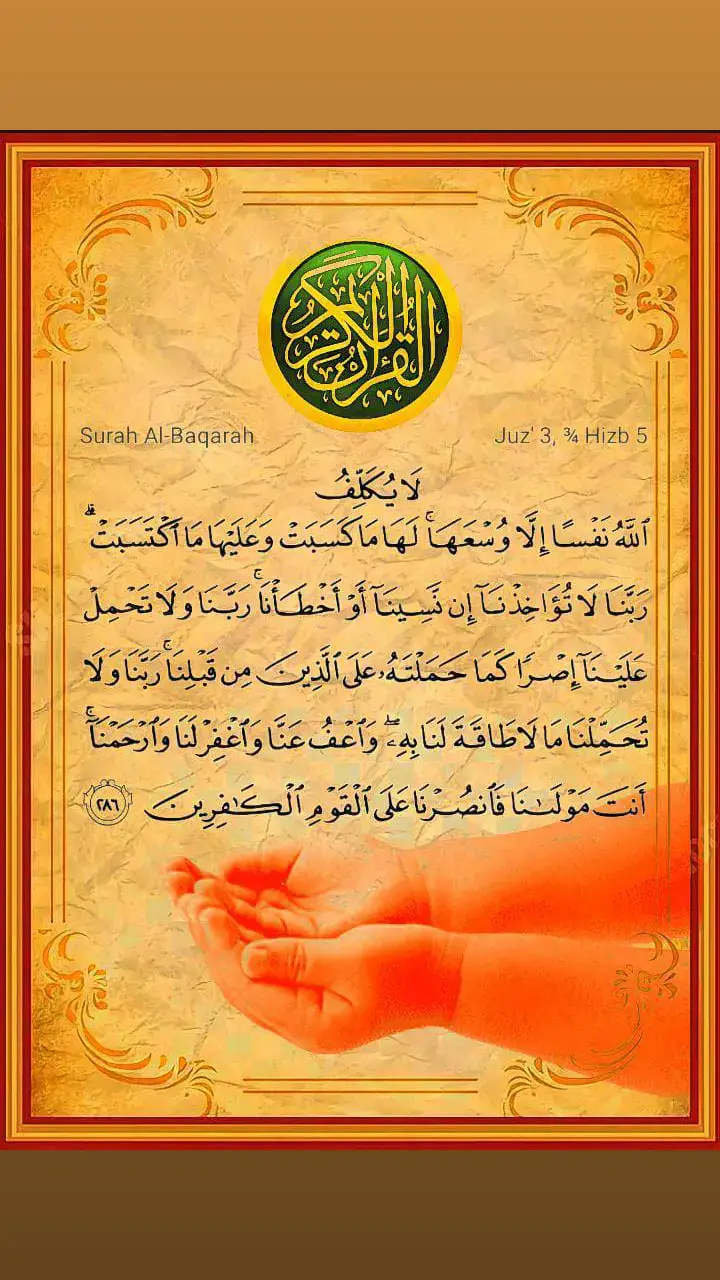 القرآن الكريم
Surah Al-Baqarah
Juz' 3, ¾ Hizb 5
لَا يُكَلِّفُ
ٱللَّهُ نَفْسًا إِلَّا وُسْعَهَاۚ لَهَا مَا كَسَبَتْ وَعَلَيْهَا مَا ٱكْتَسَبَتْۗ
رَبَّنَا لَا تُؤَاخِذْنَآ إِن نَّسِينَآ أَوْ أَخْطَأْنَاۚ رَبَّنَا وَلَا تَحْمِلْ
عَلَيْنَآ إِصْرًا كَمَا حَمَلْتَهُۥ عَلَى ٱلَّذِينَ مِن قَبْلِنَاۚ رَبَّنَا وَلَا
تُحَمِّلْنَا مَا لَا طَاقَةَ لَنَا بِهِۦۖ وَٱعْفُ عَنَّا وَٱغْفِرْ لَنَا وَٱرْحَمْنَآۚ
أَنتَ مَوْلَىٰنَا فَٱنصُرْنَا عَلَى ٱلْقَوْمِ ٱلْكَٰفِرِينَ ٢٨٦